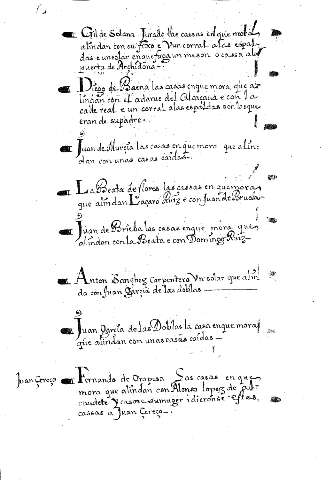 Gil de Solana Jurado las cassas en que mora
alindan con su fixo e Vun corral a las espal
das e un solar en que faga un meson o cassa a la
puerta de Archidona
Diego de Baena las casas en que mora que a
lindan con el adarue del Alcaçaua e con la
calle real e un corral a las espaldas son lo que
eran de su padre
Juan de Murcia las casas en que mora que alin
dan con unas casas caidas
La Beata de flores las cassas en que mora
que alindan Laçaro Ruiz e con Juan de
Juan de Brieba las casas en que mora que
alindan con la Beata e con Domingo Ruiz
Anton Sanchez Carpintero Vn solar que alin
da con Juan Garcia de las doblas
Juan Garcia de las Doblas la casa en que mora
que alindan con unas casas caidas
Juan Cereço
Fernando de Oropesa Las casas en que
mora que alindan con Alonso lopez de al
caudete y casose su muger i dieronse estas
cassas a Juan Cereço